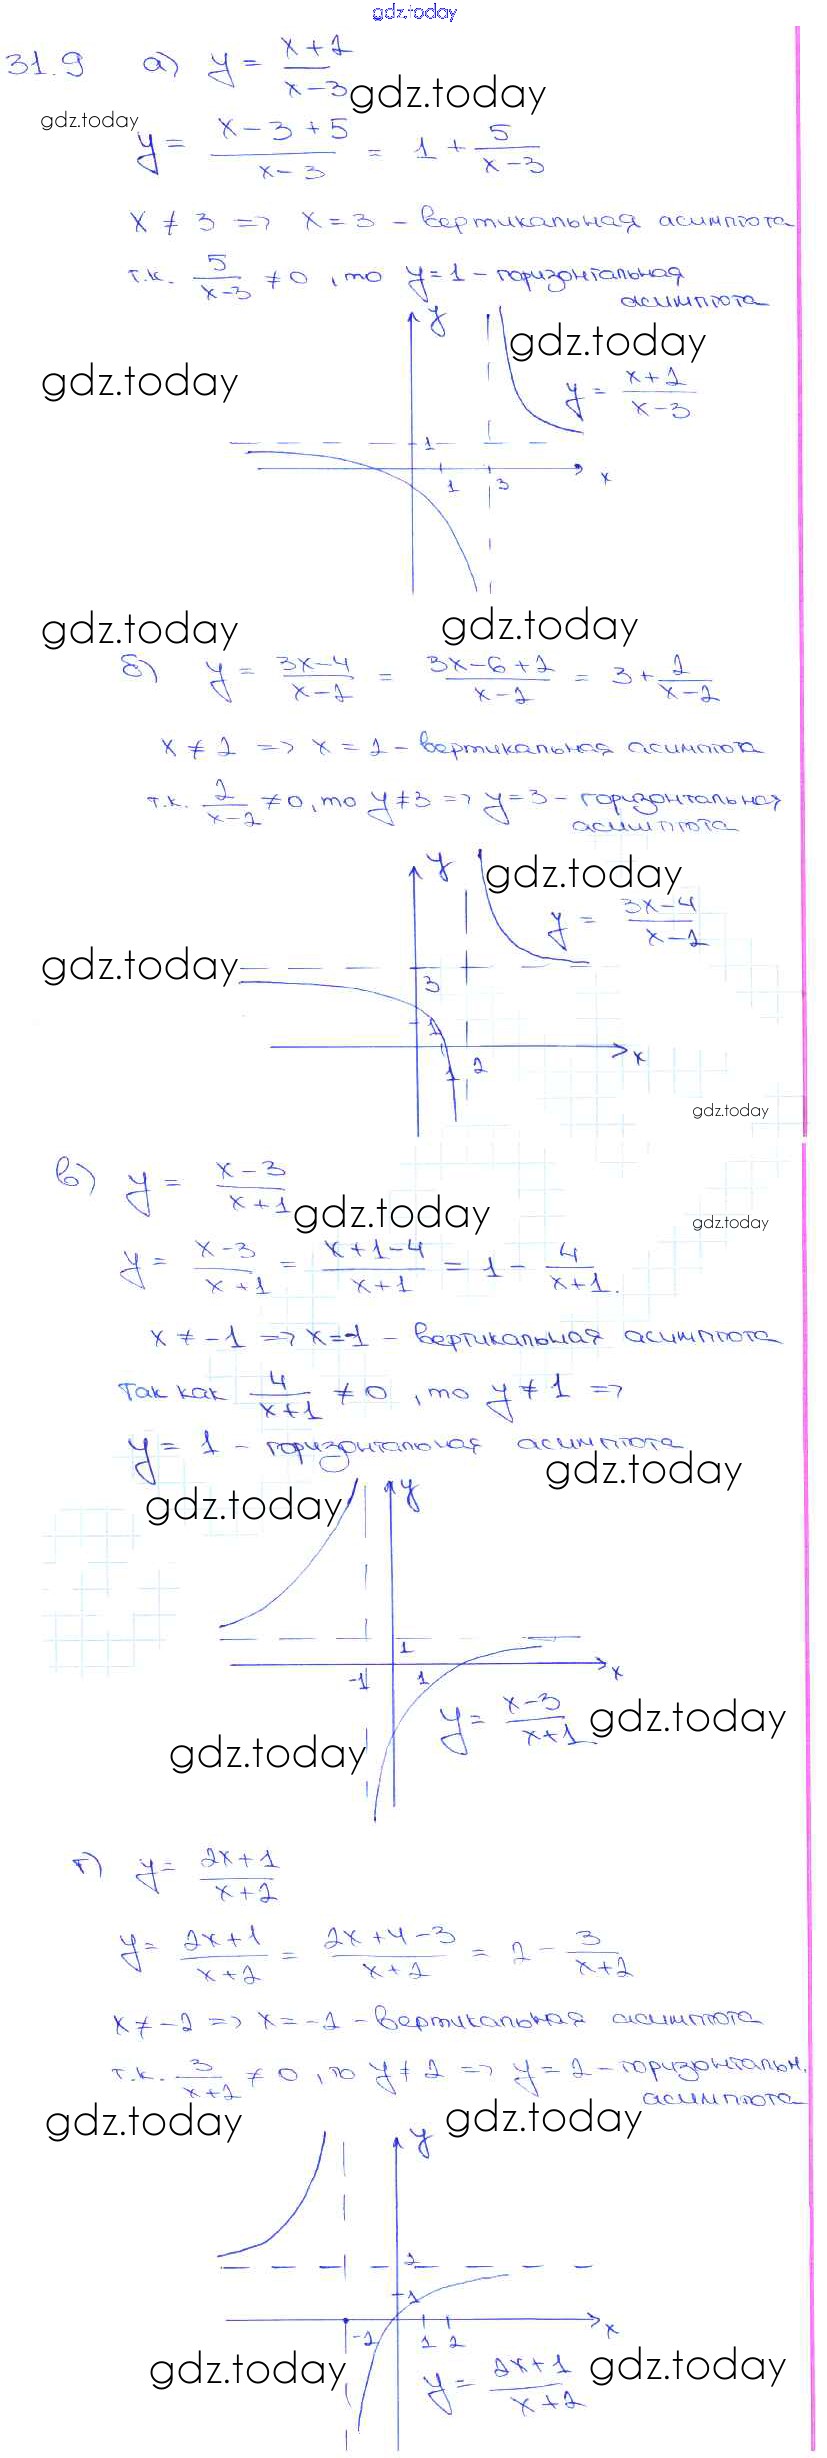 gdz.today
31.9 а) y = (x+2)/(x-3)
gdz.today
gdz.today
y = (x-3+5)/(x-3) = 1 + 5/(x-3)
x ≠ 3 => x = 3 - вертикальная асимптота
т.к. 5/(x-3) ≠ 0, то y = 1 - горизонтальная
асимптота
y
gdz.today
gdz.today
y = (x+2)/(x-3)
1
1 3 x
gdz.today gdz.today
б) y = (3x-4)/(x-2) = (3x-6+2)/(x-2) = 3 + 2/(x-2)
x ≠ 2 => x = 2 - вертикальная асимптота
т.к. 2/(x-2) ≠ 0, то y ≠ 3 => y = 3 - горизонтальная
асимптота
y gdz.today
y = (3x-4)/(x-2)
gdz.today
3
1
1 2 x
gdz.today
в) y = (x-3)/(x+1)
gdz.today gdz.today
y = (x-3)/(x+1) = (x+1-4)/(x+1) = 1 - 4/(x+1).
x ≠ -1 => x = -1 - вертикальная асимптота
Так как 4/(x+1) ≠ 0, то y ≠ 1 =>
y = 1 - горизонтальная асимптота
gdz.today
gdz.today y
1
-1 1 x
y = (x-3)/(x+1) gdz.today
gdz.today
г) y = (2x+1)/(x+2)
y = (2x+1)/(x+2) = (2x+4-3)/(x+2) = 2 - 3/(x+2)
x ≠ -2 => x = -2 - вертикальная асимптота
т.к. 3/(x+2) ≠ 0, то y ≠ 2 => y = 2 - горизонтальн.
асимптота
gdz.today gdz.today
y
2
1
-2 1 2 x
gdz.today y = (2x+1)/(x+2) gdz.today